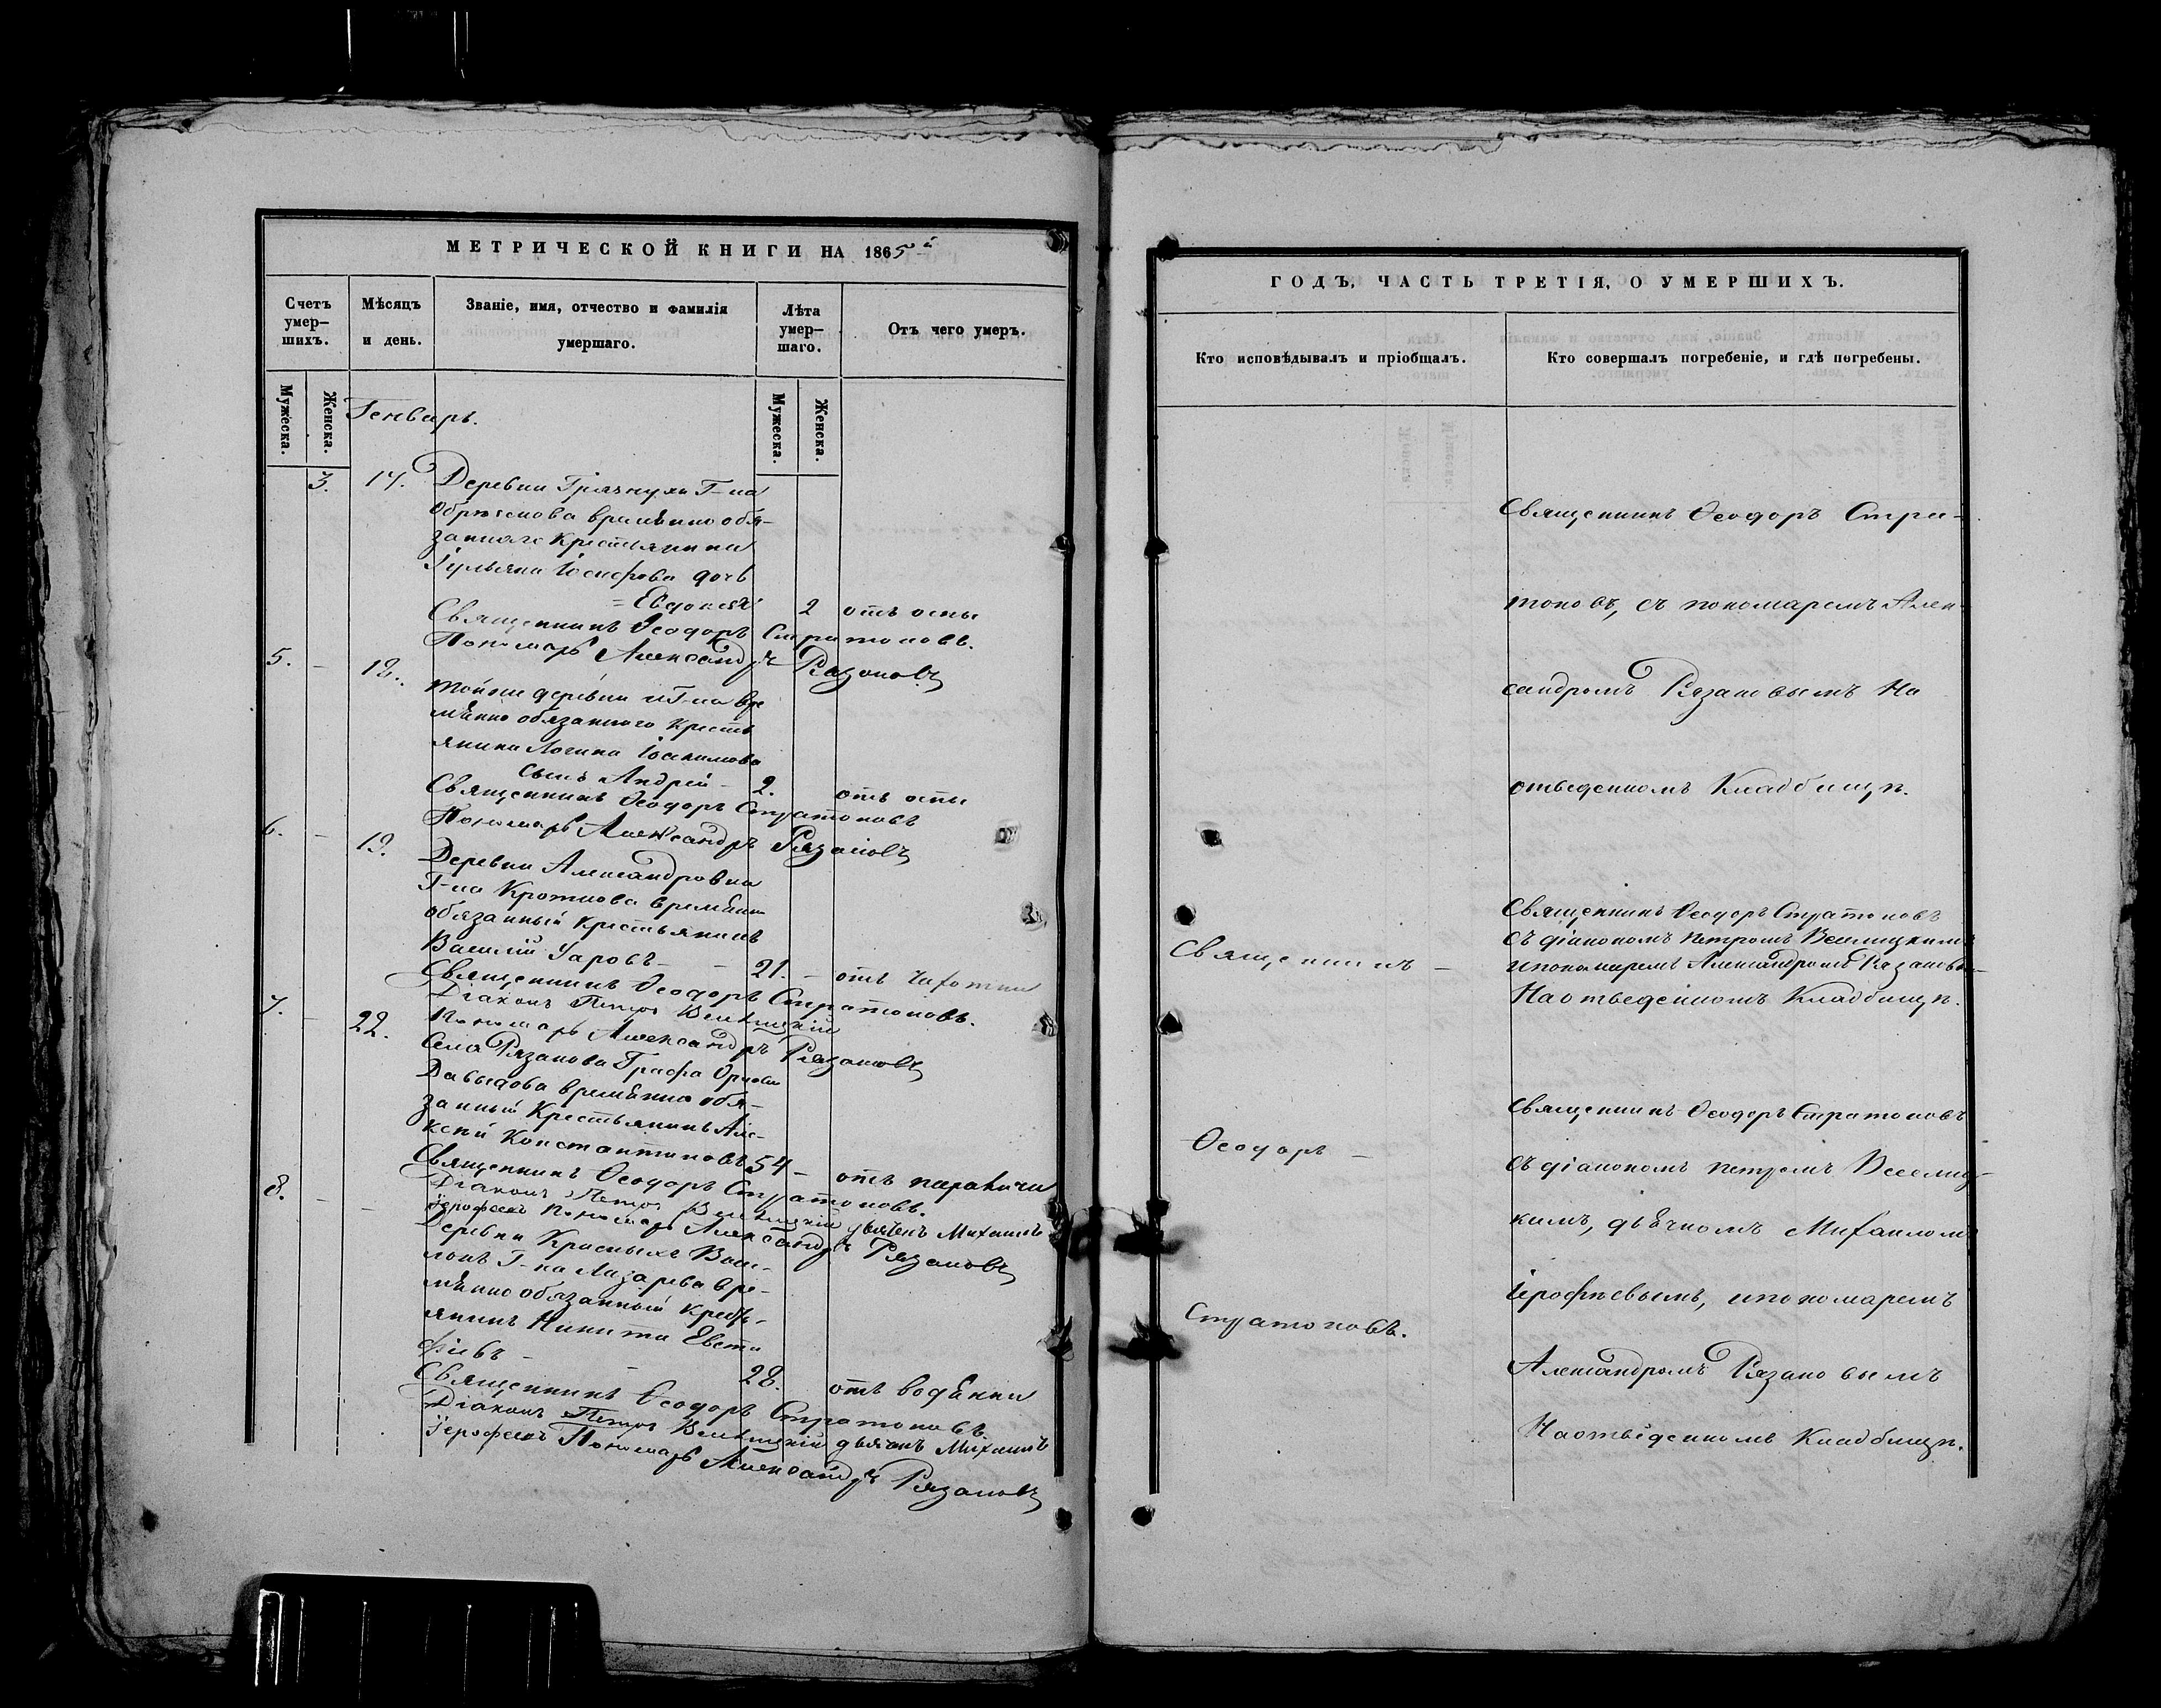 МЕТРИЧЕСКОЙ КНИГИ НА 1865й
Счетъ умер-шихъ.
Мѣсяцъ и день.
Званіе, имя, отчество и фамилія умершаго.
Лѣта умер-шаго.
Отъ чего умеръ.
Мужеска.
Женска.
Мужеска.
Женска.
Генварь.
3. 14. Деревни Г-на
временно обя-
заннаго крестьянина
Іульяна Іосифова дочь
= Евдокія 2 отъ оспы
Священникъ Ѳеодоръ Стратоновъ.
Пономарь Александръ Рязановъ
5. – 18. Тойже деревни и Г-на вре
мѣнно обязаннаго кресть
янина Логина Іоакимова
сынъ Андрей – 2. отъ оспы
Священникъ Ѳеодоръ Стратоновъ
Пономарь Александръ Рязановъ
6. – 19. Деревни Александровки
Г-на Кроткова времѣнно
обязанный крестьянинъ
Василій Уаровъ – – 21. – отъ чахотки
Священникъ Ѳеодоръ Стратоновъ.
Діаконъ Петръ Веселицкій
Пономарь Александръ Рязановъ
7. – 22. Села Рязанова Графа Орлова
Давыдова времѣнно обя-
занный Крестьянинъ Але-
ксѣй Константиновъ 54 – отъ паралича
Священникъ Ѳеодоръ Стратоновъ.
Діаконъ Петръ Веселицкій дьячекъ Михаилъ
Іерофеевъ Пономарь Александръ Рязановъ
8. – – Деревни Красныхъ
Г-на Лазарева вре-
мѣнно обязанный кресть-
янинъ Никита Евста
фіевъ – – 28. отъ водянки
Священникъ Ѳеодоръ Стратоновъ.
Діаконъ Петръ Веселицкій дьячекъ Михаилъ
Іерофеевъ Пономарь Александръ Рязановъ
ГОДЪ, ЧАСТЬ ТРЕТІЯ, О УМЕРШИХЪ.
Кто исповѣдывалъ и пріобщалъ.
Кто совершалъ погребеніе, и гдѣ погребены.
Священникъ –
Ѳеодоръ –
Стратоновъ.
Священникъ Ѳеодоръ Стра-
тоновъ, съ пономаремъ Алек-
сандромъ Рязановымъ На
отведенномъ Кладбищѣ.
Священникъ Ѳеодоръ Стратоновъ
съ діакономъ Петромъ Веселицкимъ
и пономаремъ Александромъ Рязановы-
На отведенномъ Кладбищѣ.
Священникъ Ѳеодоръ Стратоновъ
съ діакономъ Петромъ Веселиц-
кимъ, дьячкомъ Михаиломъ
Іерофѣевымъ, и пономаремъ
Александромъ Рязановымъ
На отведенномъ Кладбищѣ.